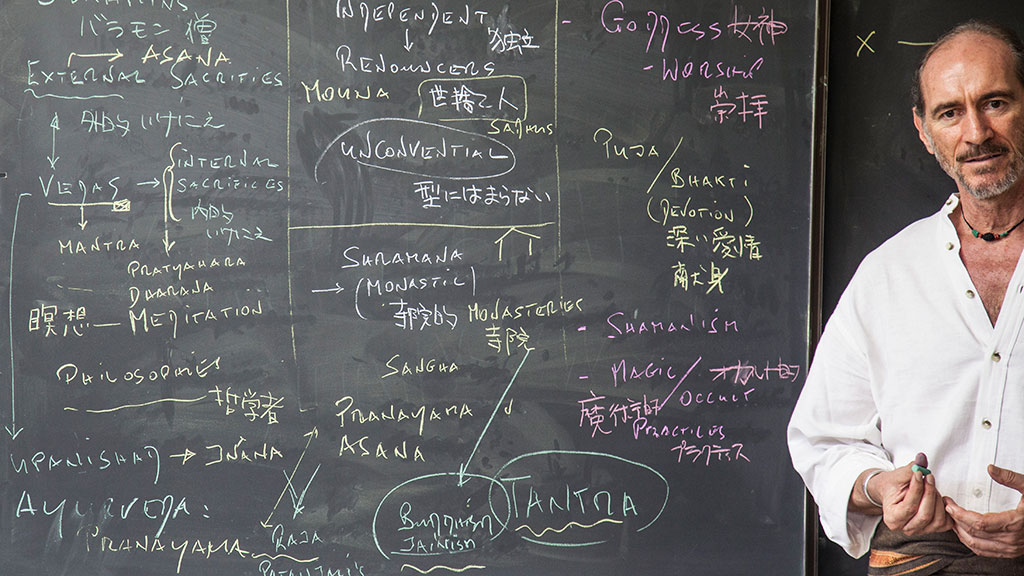 バラモン 僧
ASANA
EXTERNAL SACRIFIES
外的 いけにえ
VEDAS →
INTERNAL
SACRIFICES
内的
いけにえ
MANTRA
PRATYAHARA
DAARANA
瞑想 — MEDITATION
PHILOSOPHIES
哲学者
UPANISHAD → JÑANA
AYURVEDA:
PRANAYAMA
RAJA
PATANJALI'S
INDEPENDENT
独立
RENOUNCERS
MOUNA
世捨て人
SADHUS
UNCONVENTIAL
型にはまらない
SHRAMANA
→ (MONASTIC)
寺院的
MONASTERIES
寺院
SANGHA
PRANAYAMA
ASANA
BUDDHISM
JAINISM
TANTRA
- GODDESS 女神
- WORSHIP
崇拝
PUJA/
BHAKTI
(DEVOTION)
深い愛情
献身
- SHAMANISM
- MAGIC/
OCCULT
魔術師
PRACTICES
プラクティス
X —